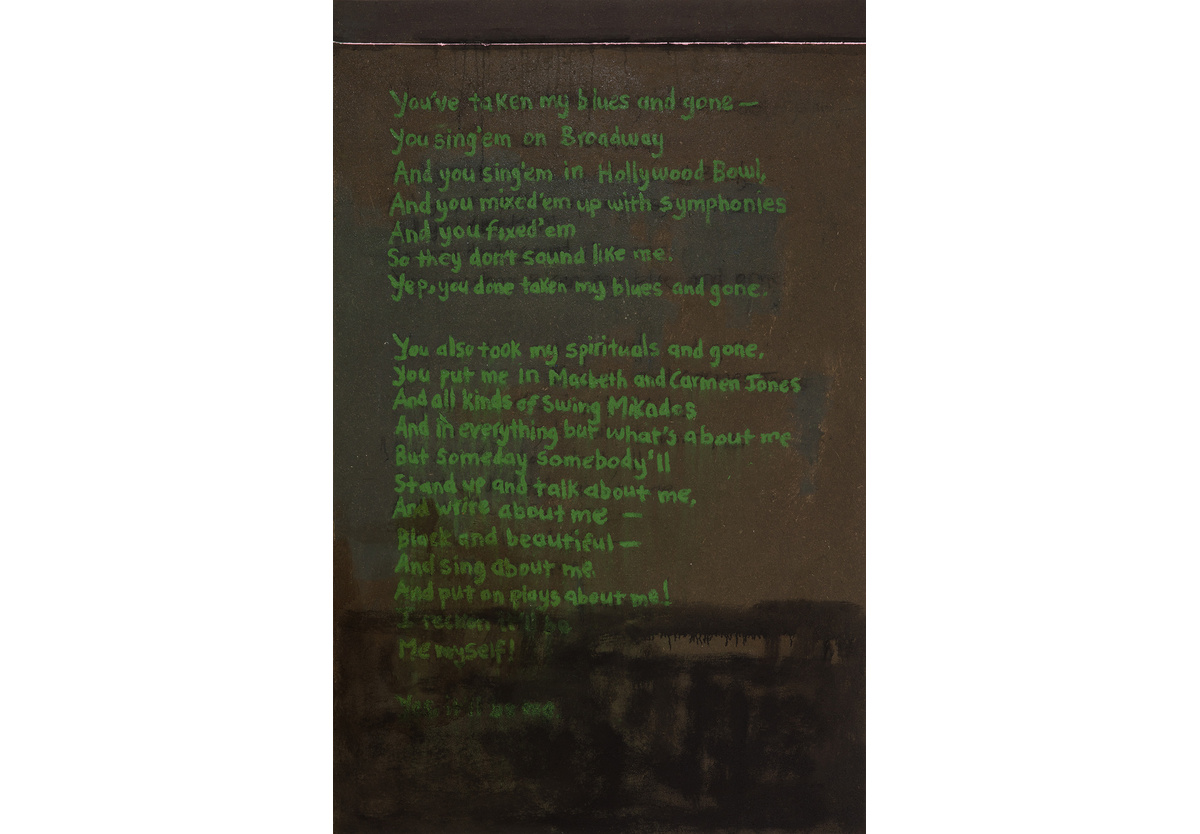 You've taken my blues and gone —
You sing'em on Broadway
And you sing'em in Hollywood Bowl,
And you mixed'em up with symphonies
And you fixed'em
So they don't sound like me.
Yep, you done taken my blues and gone.
You also took my spirituals and gone,
You put me in Macbeth and Carmen Jones
And all kinds of Swing Mikados
And in everything but what's about me
But someday somebody'll
Stand up and talk about me,
And write about me —
Black and beautiful —
And sing about me,
And put on plays about me!
I reckon it'll be
Me myself!
Yes, it'll be me.